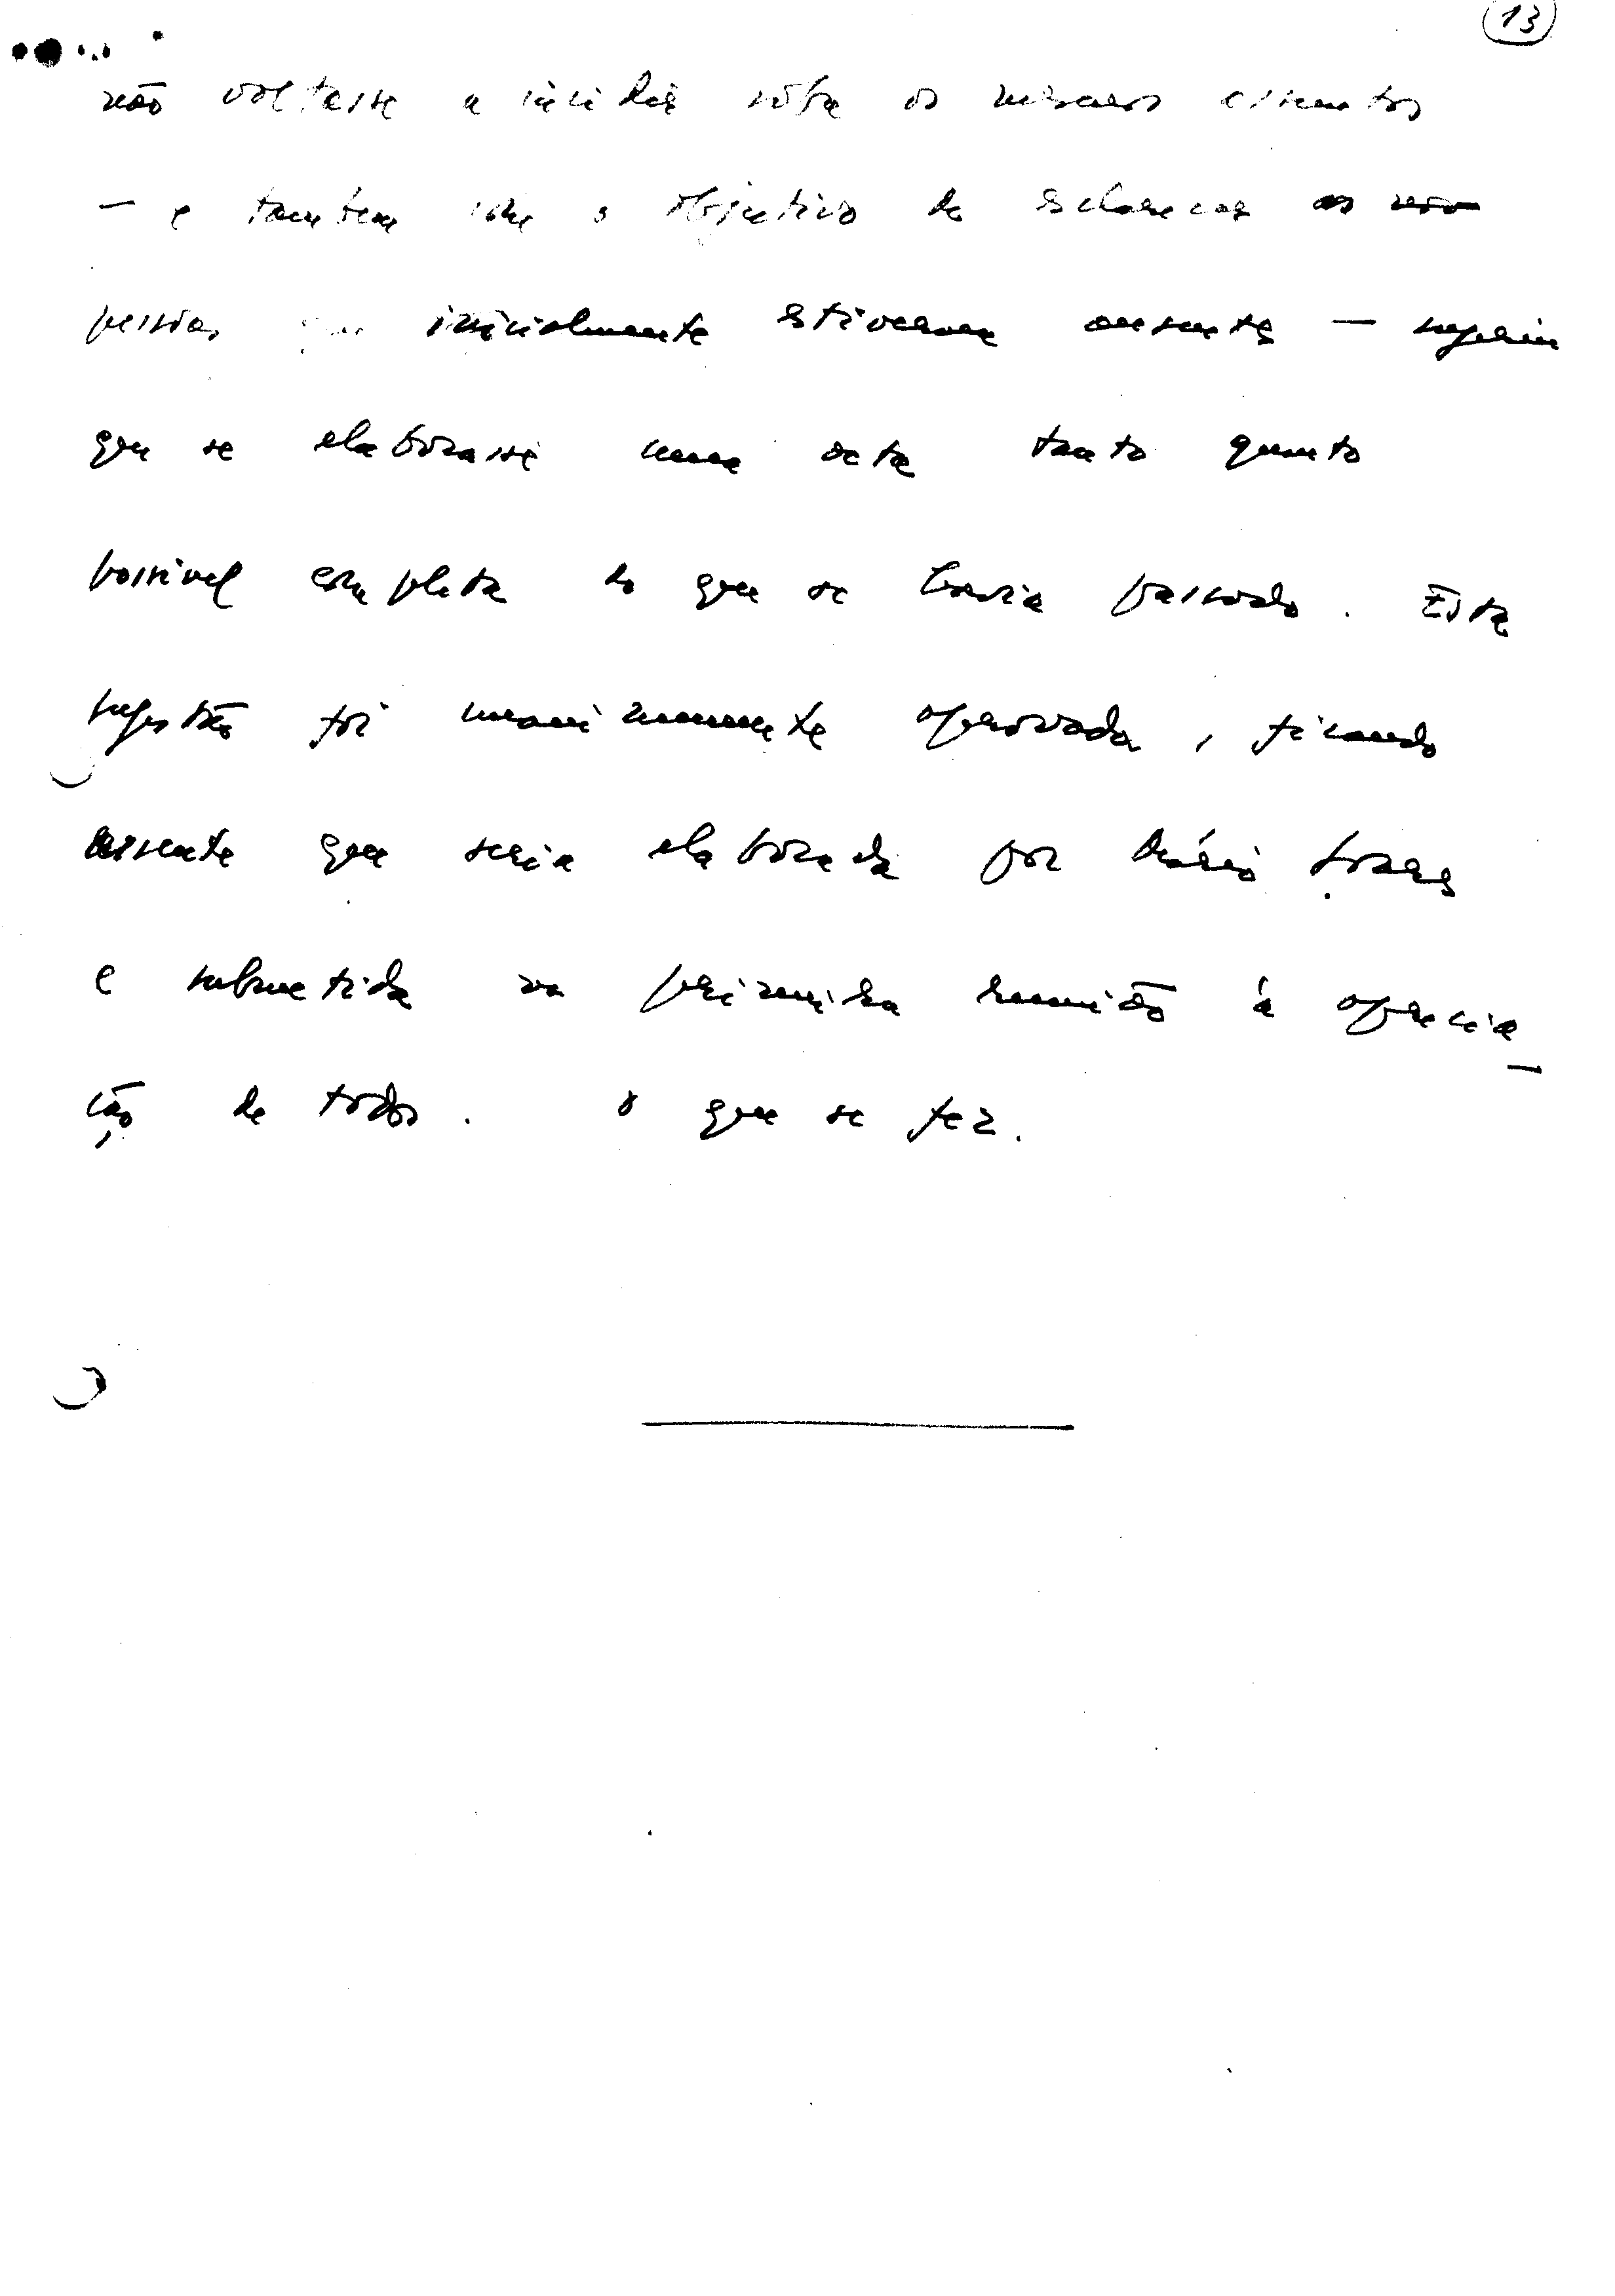 13
não voltasse a incidir sôbre os mesmos assuntos
— e também com o objectivo de esclarecer as
pessoas que inicialmente estiveram ausentes — sugeriu
que se elaborasse uma acta tanto quanto
possível completa do que se havia passado. Esta
sugestão foi unanimemente aprovada, ficando
assente que seria elaborada por Mário Soares
e submetida na primeira reunião à aprecia-
ção de todos. O que se fez.